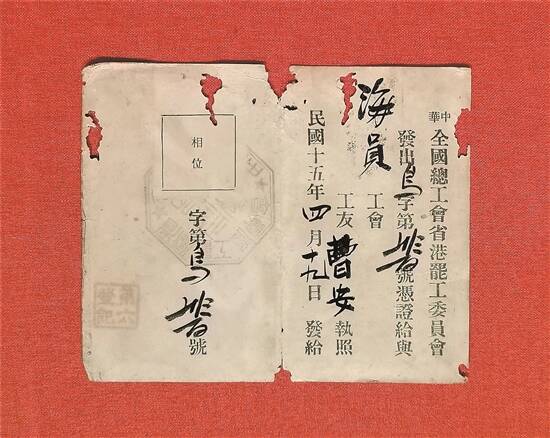 中華全國總工會省港罷工委員會
發出字第號憑證給與
海員工會
工友曹安執照
民國十五年四月十九日發給
相位
字第號